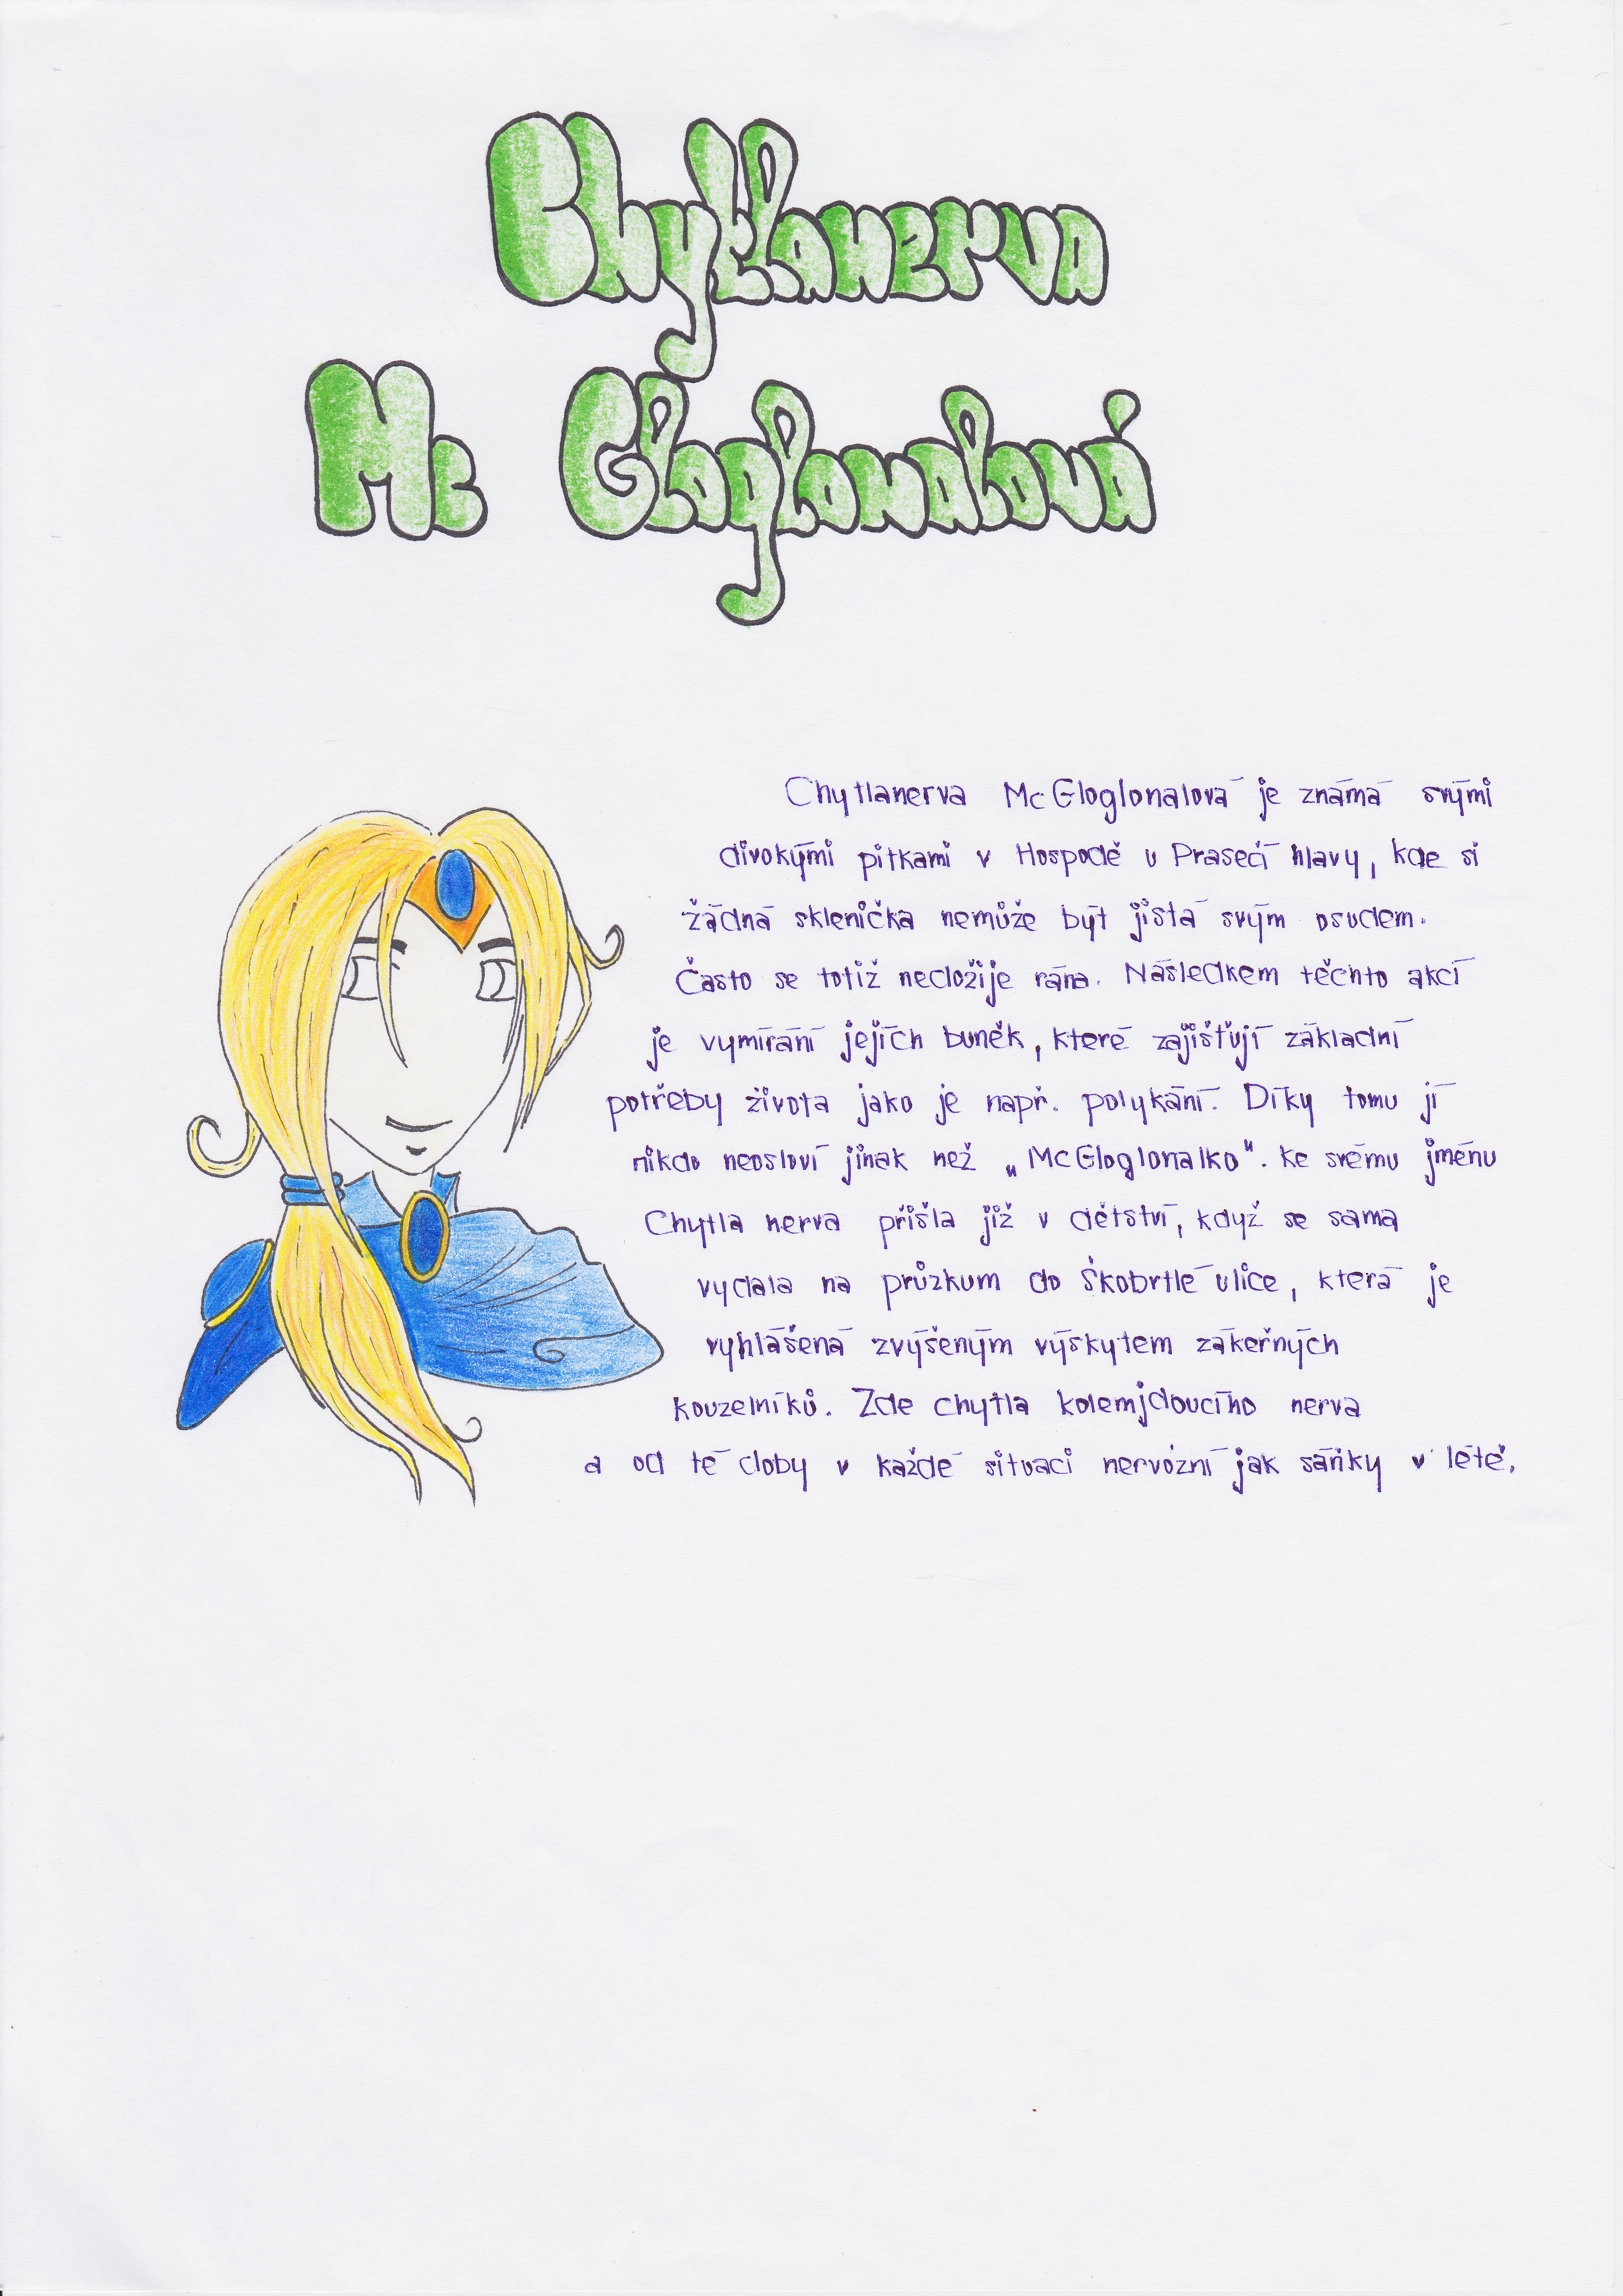 Chytlanerva
Mc Gloglonalová
Chytlanerva McGloglonalová je známá svými
divokými pitkami v Hospodě u Prasečí hlavy, kde si
žádná sklenička nemůže být jistá svým osudem.
Často se totiž nedožije rána. Následkem těchto akcí
je vymírání jejích buněk, které zajišťují základní
potřeby života jako je např. polykání. Díky tomu jí
nikdo neosloví jinak než „McGloglonalko". Ke svému jménu
Chytla nerva přišla již v dětství, když se sama
vydala na průzkum do Škobrtlé ulice, která je
vyhlášená zvýšeným výskytem zákeřných
kouzelníků. Zde chytla kolemjdoucího nerva
a od té doby v každé situaci nervózní jak sáňky v létě.